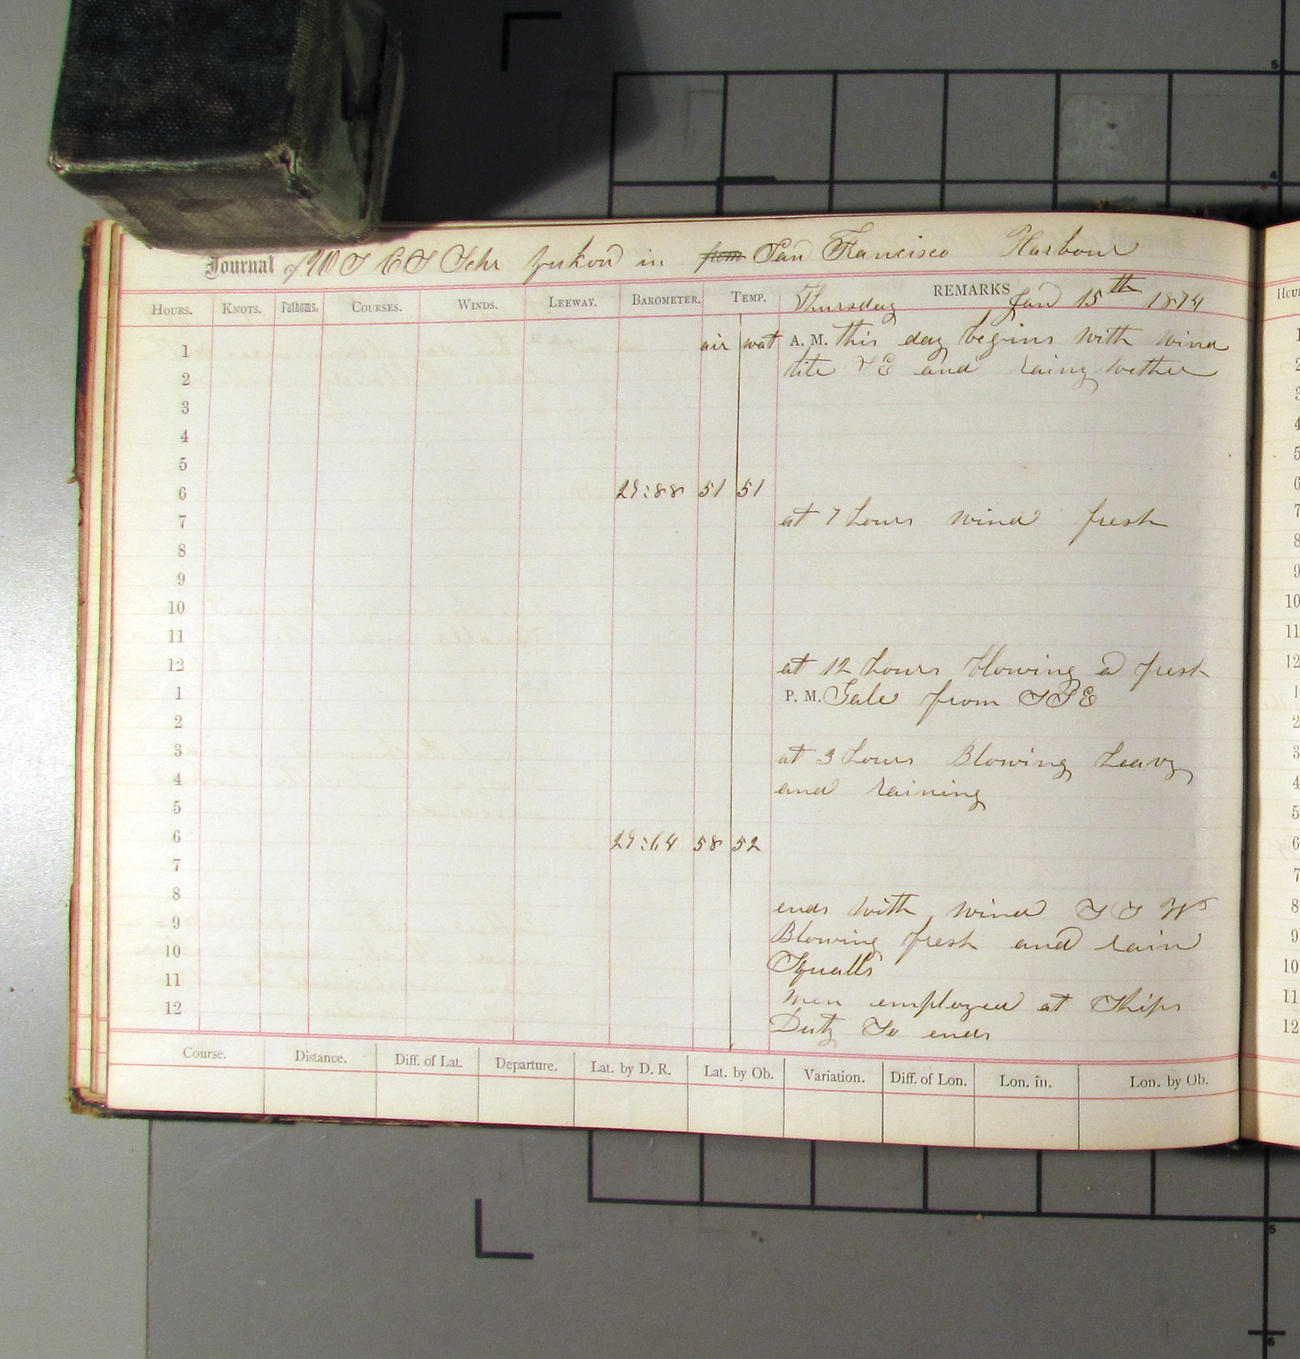 Journal of U S C S Schr Yukon in from San Francisco Harbour
HOURS. KNOTS. Fathoms. COURSES. WINDS. LEEWAY. BAROMETER. TEMP. REMARKS
Thursday Jan 15th 1874
1 air wat A. M. this day begins with wind
2 lite SE and rainy wether
3
4
5
6 29:88 51 51
7 at 7 hours wind fresh
8
9
10
11
12 at 12 hours blowing a fresh
1 P. M. Gale from SSE
2
3 at 3 hours Blowing heavy
4 and raining
5
6 29:64 58 52
7
8 ends with wind S S W
9 Blowing fresh and rain
10 Squalls
11 men employed at Ships
12 Duty So ends
Course. Distance. Diff. of Lat. Departure. Lat. by D. R. Lat. by Ob. Variation. Diff. of Lon. Lon. in. Lon. by Ob.
1
2
3
4
5
6
7
8
9
10
11
12
1
2
3
4
5
6
7
8
9
10
11
12
5
4
5
6